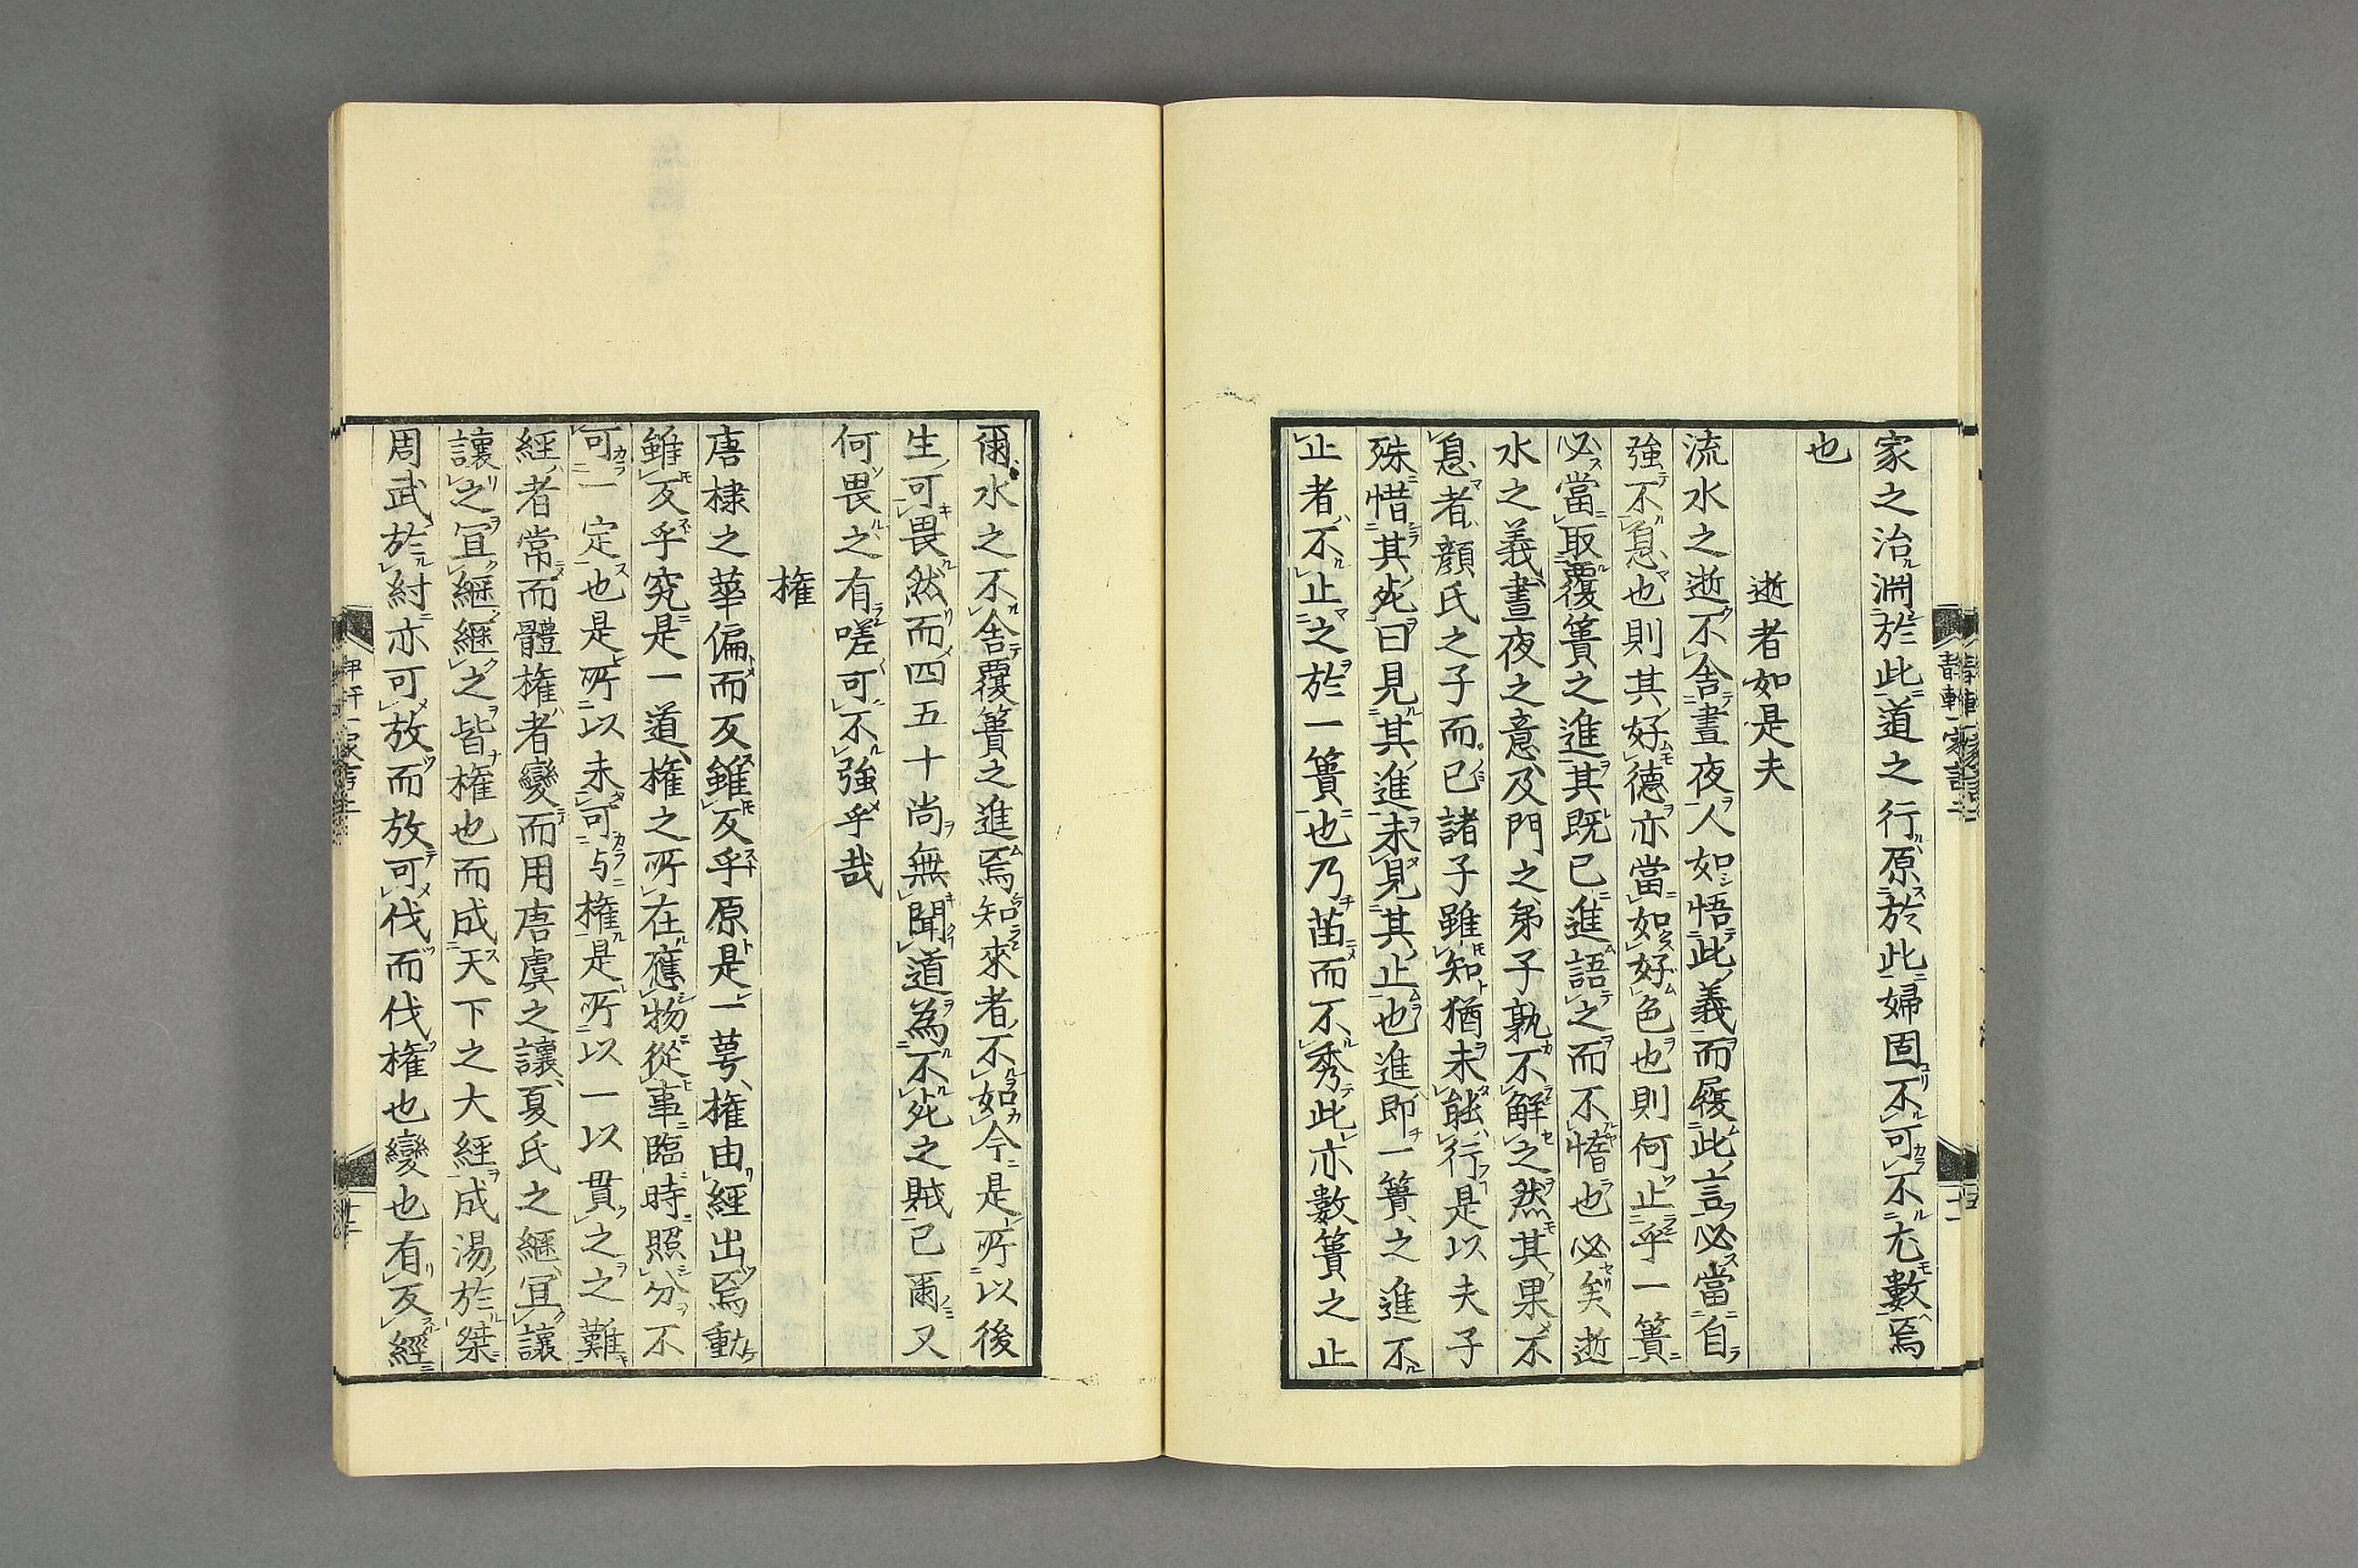 家之治淵於此道之行原於此婦固不可不尤數焉
也
逝者如是夫
流水之逝不舎晝夜人如悟此義而履此言必當自
強不息也則其好德亦當如好色也則何止乎一簣
必當取覆簣之進其既已進語之而不惰也必矣逝
水之義晝夜之意及門之弟子孰不解之然其果不
息者顔氏之子而已諸子雖知猶未能行是以夫子
殊惜其死曰見其進未見其止也進即一簣之進不
止者不止之於一簣也乃苗而不秀此亦數簣之止
爾水之不舎覆簣之進焉知來者不如今是所以後
生可畏然而四五十尚無聞道為不死之賊已爾又
何畏之有嗟可不強乎哉
権
唐棣之華偏而反雖反乎原是一萼権由經出焉動
雖反乎究是一道権之所在應物從事臨時照分不
可一定也是所以未可与権是所以一以貫之之難
經者常而體権者變而用唐虞之讓夏氏之繼宜讓
讓之宜繼繼之皆権也而成天下之大經成湯於桀
周武於紂亦可放而放可伐而伐権也變也有反經